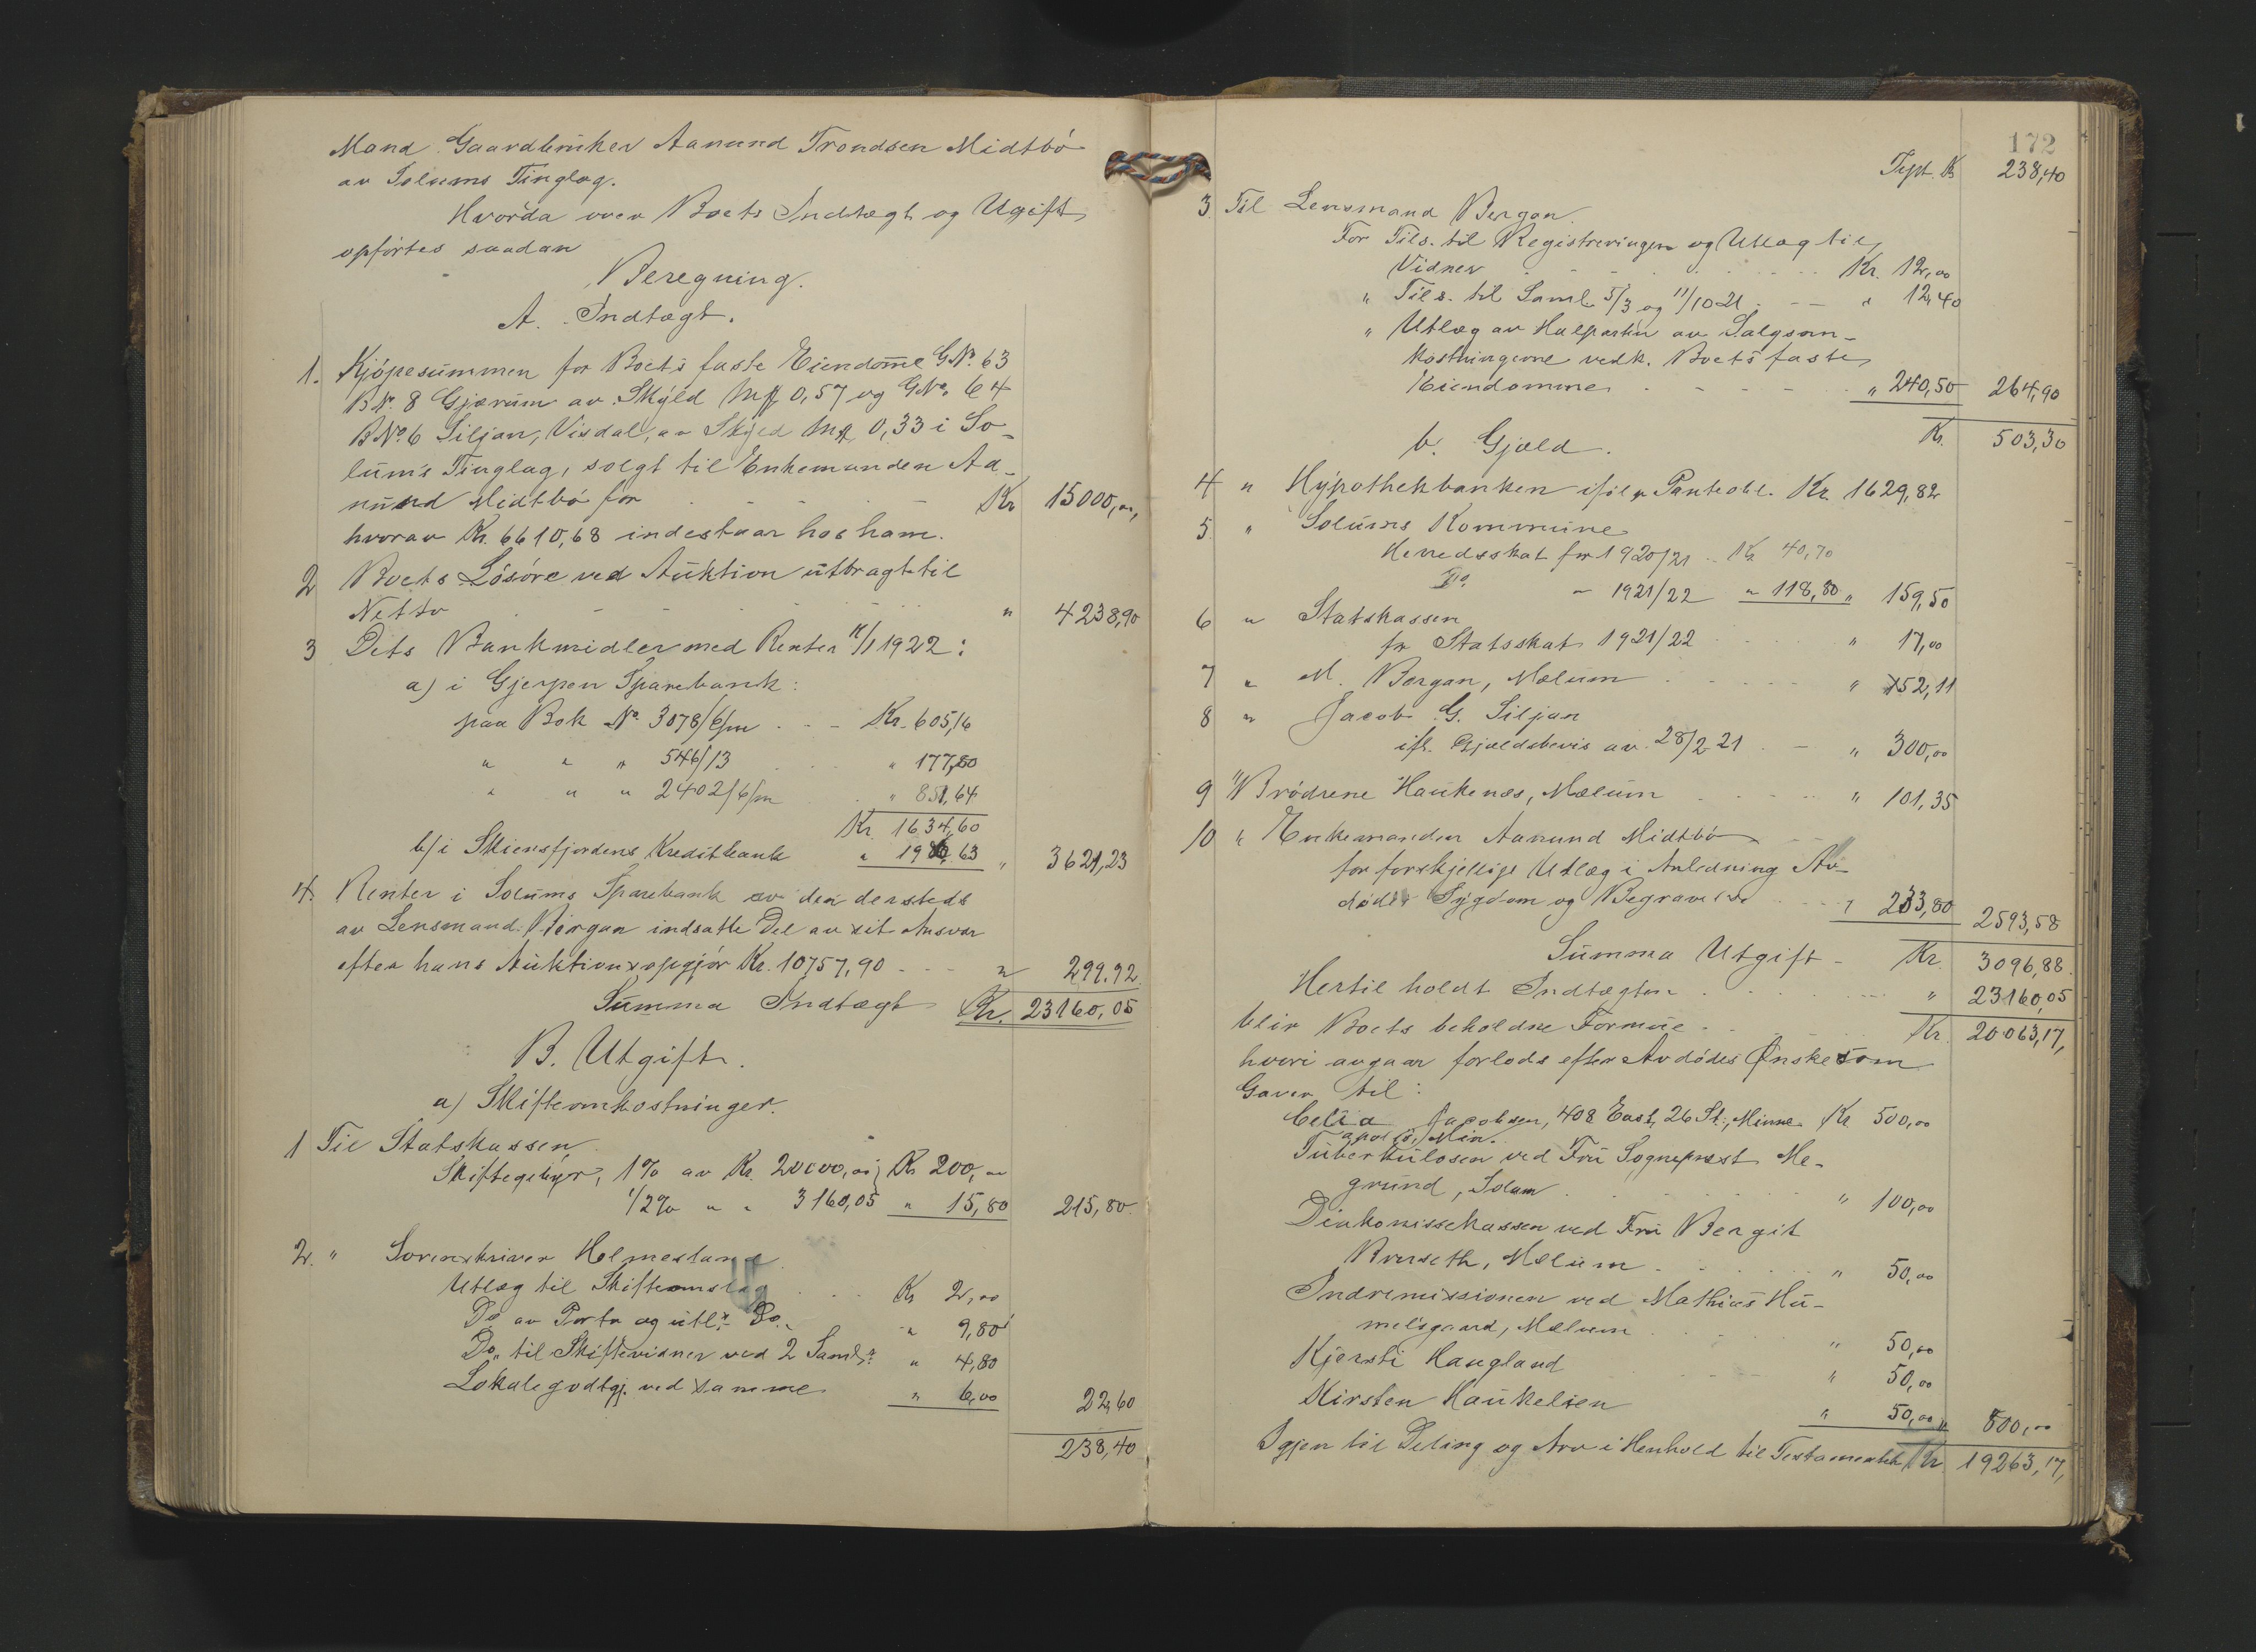 Mand Gaardbruker Aanund Trondsen Midtbö
av Solums Tinglag.
Hvorda over Boets Indtægt og Utgift
opförtes saadan
Beregning.
A. Indtægt.
1. Kjöpesummen for Boets faste Eiendomme GNo. 63
BNo. 8 Gjærum av Skyld Mk 0,57 og GNo. 64
BNo. 6 Siljan, Visdal, av Skyld Mk 0,33 i So-
lum's Tinglag, solgt til Enkemanden Aa-
nund Midtbö for Kr 15000,00,
hvorav Kr. 6610,68 indestaar hos ham.
2 Boets Lösöre ved Auktion utbragt til
Netto " 4238,90
3 Dets Bankmidler med Renter 11/1 1922:
a) i Gjerpen Sparebank:
paa Bok No. 3078/6/m Kr. 605,16
" " " 546/13 " 177,80
" " " 2402/6/m " 851,64
Kr. 1634,60
b/i Skiensfjordens Kreditbank " 1986,63 " 3621,23
4. Renter i Solums Sparebank av den dersteds
av Lensmand Bergan indsatte Del av sit Ansvar
efter hans Auktionsopgjör Kr. 10757,90 " 299,92
Summa Indtægt Kr. 23160,05
B. Utgift.
a) Skifteomkostninger.
1 Til Statskassen
Skiftegebyr, 1% av Kr. 20000,00; Kr 200,00
1/2% " " 3160,05 " 15,80 215,80.
2. " Sorenskriver Helmesland
Utlæg til Skifteomslag Kr 2,00
Do av Porto og utl. Do. " 9,80
Do. til Skiftevidner ved 2 Saml. " 4,80
Lokalegodtgj. ved samme " 6,00 22,60
238,40
172
Tspt. Kr 238,40
3 Til Lensmand Bergan.
For Tils. til Registreringen og Utlæg til
Vidner Kr. 12,00
" Tils. til Saml. 5/3 og 11/10 21 " 12,40
" Utlæg av Halparten av Salgsom-
kostningerne vedk. Boets faste
Eiendomme " 240,50 264,90
Kr. 503,30
b. Gjæld.
4 " Hypothekbanken ifölge Panteobl. Kr. 1629,82
5. " Solums Kommune
Herredsskat for 1920/21 Kr 40,70
Do. - 1921/22 " 118,80 " 159,50
6 " Statskassen
for Statsskat 1921/22 " 17,00
7 " M. Bergan, Mælum " 152,11
8 " Jacob G. Siljan
ifl. Gjældsbevis av 28/2 21 " 300,00
9 " Brödrene Haukenæs, Mælum " 101,35
10 " Enkemanden Aanund Midtbö
for forskjellige Utlæg i Anledning Av-
dödes Sygdom og Begravelse " 233,80 2593,58
Summa Utgift Kr. 3096,88
Hertil holdt Indtægten " 23160,05
blir Boets beholdne Formue Kr. 20063,17,
hvori avgaar forlods efter Avdödes Ønske som
Gaver til:
Celia Jacobsen, 408 East, 26 St., Minne- Kr. 500,00
apolis, Min.
Tuberkulosen ved Fru Sogneprest Me-
grund, Solum " 100,00
Diakonissekassen ved Fru Bergit
Bruseth, Mælum " 50,00
Indremissionen ved Mathias Hu-
melsgaard, Mælum " 50,00
Kjersti Haugland " 50,00
Kirsten Haukelien " 50,00 " 800,00
Igjen til Deling og Arv i Henhold til Testamentet Kr. 19263,17,